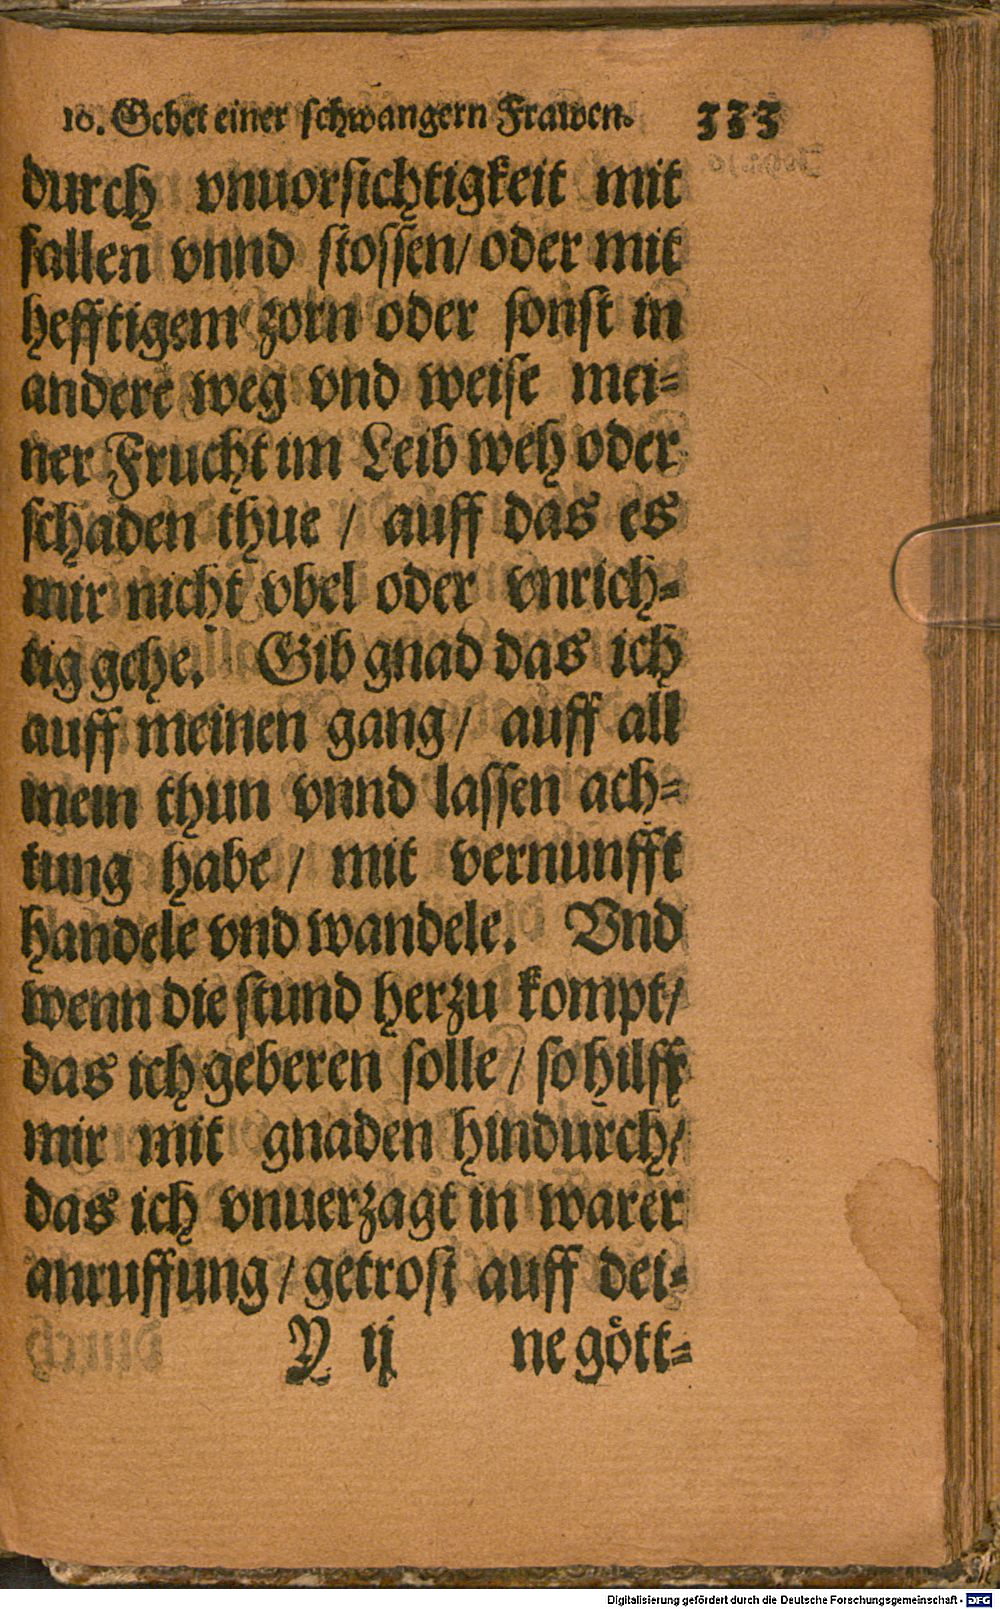 10. Gebet einer schwangern Frawen. 333
durch vnuorsichtigkeit mit
fallen vnnd stossen/ oder mit
hefftigem zorn oder sonst in
andere weg vnd weise mei-
ner Frucht im Leib weh oder
schaden thue / auff das es
mir nicht vbel oder vnrich-
tig gehe. Gib gnad das ich
auff meinen gang/ auff all
mein thun vnnd lassen ach-
tung habe / mit vernunfft
handele vnd wandele. Vnd
wenn die stund herzu kompt/
das ich geberen solle / so hilff
mir mit gnaden hindurch/
das ich vnuerzagt in warer
anruffung / getrost auff dei-
Y ij ne gött-
Digitalisierung gefördert durch die Deutsche Forschungsgemeinschaft - DFG